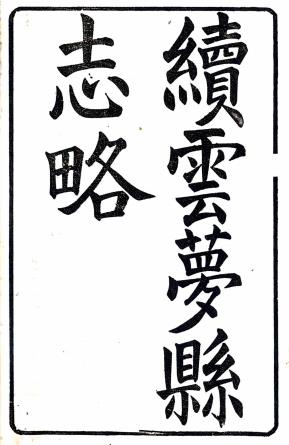 續雲夢縣
志略